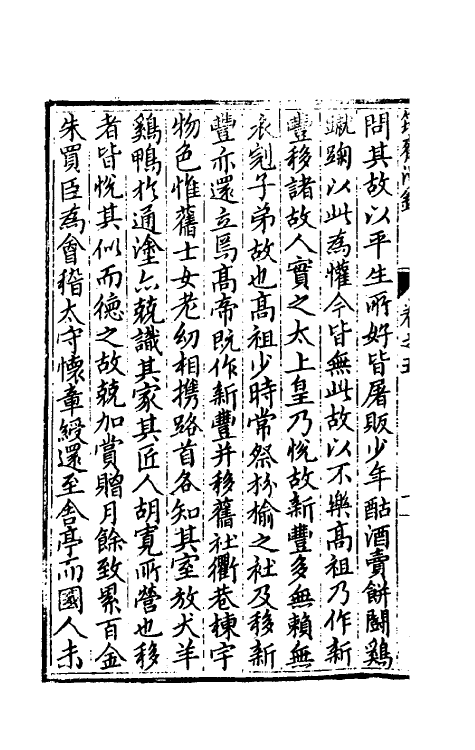 問其故以平生所好皆屠販少年酤酒賣餅鬭鷄
蹴踘以此為懽今皆無此故以不樂高祖乃作新
豐移諸故人實之太上皇乃悅故新豐多無賴無
衣冠子弟故也高祖少時常祭枌榆之社及移新
豐亦還立焉高帝既作新豐并移舊社衢巷棟宇
物色惟舊士女老幼相携路首各知其室放犬羊
鷄鴨於通塗亦競識其家其匠人胡寛所營也移
者皆悅其似而德之故競加賞贈月餘致累百金
朱買臣為會稽太守懷章綬還至舍亭而國人未